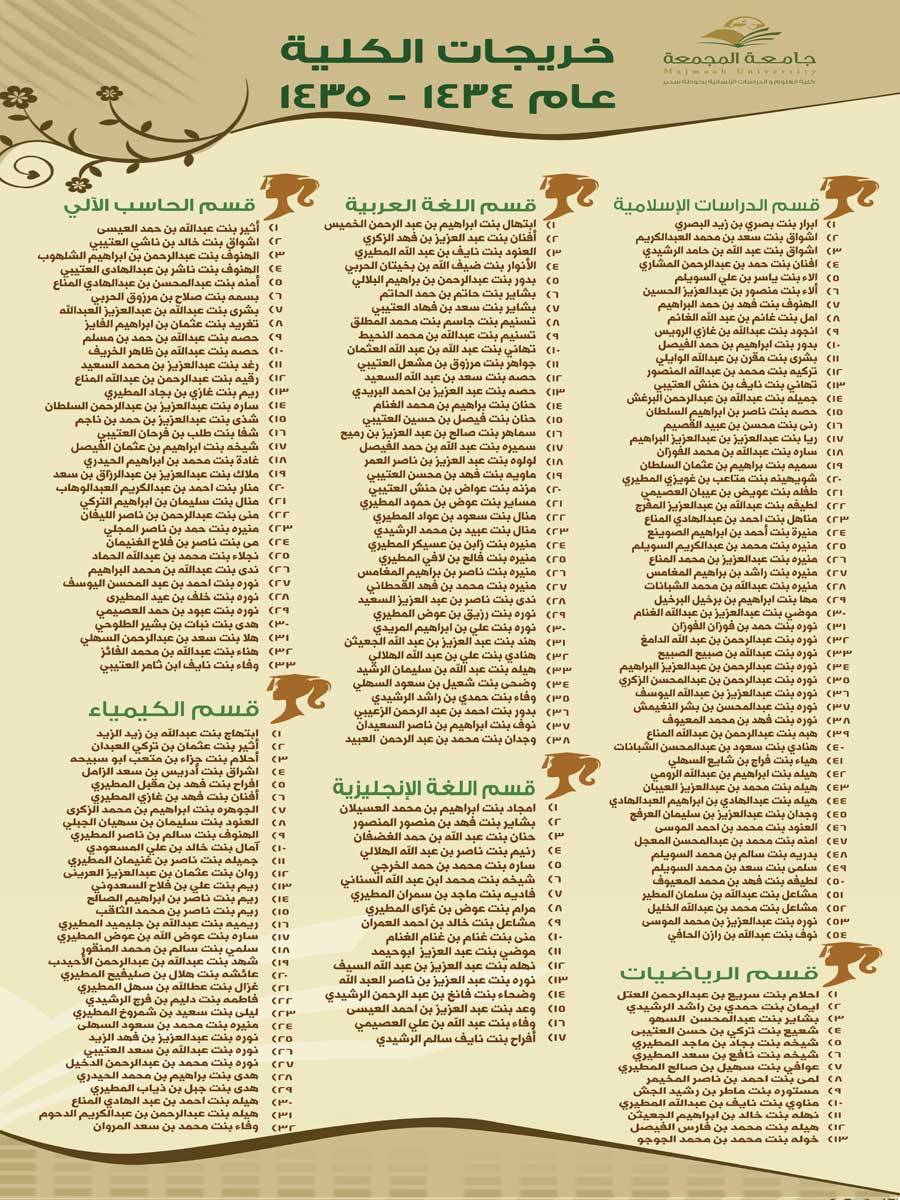 جامعة المجمعة
Majmaah University
كلية العلوم والدراسات الإنسانية بحوطة سدير
خريجات الكلية
عام ١٤٣٤ - ١٤٣٥
قسم الدراسات الإسلامية
١) ابرار بنت بصري بن زيد البصري
٢) اشواق بنت سعد بن محمد العبدالكريم
٣) اشواق بنت عبد الله بن حامد الرشيدي
٤) افنان بنت حمد بن عبدالرحمن المشاري
٥) الاء بنت ياسر بن علي السويلم
٦) ألاء بنت منصور بن عبدالعزيز الحسين
٧) الهنوف بنت فهد بن حمد البراهيم
٨) امل بنت غانم بن عبد الله الغانم
٩) انجود بنت عبدالله بن غازي الرويس
١٠) بدور بنت ابراهيم بن حمد الفيصل
١١) بشرى بنت مقرن بن عبدالله الوايلي
١٢) تركيه بنت محمد بن عبدالله المنصور
١٣) تهاني بنت نايف بن حنش العتيبي
١٤) جميله بنت عبدالله بن عبدالرحمن البرغش
١٥) حصه بنت ناصر بن ابراهيم السلطان
١٦) رنى بنت محسن بن عبيد القصيم
١٧) ريا بنت عبدالعزيز بن عبدالعزيز البراهيم
١٨) ساره بنت عبدالله بن محمد الفوزان
١٩) سميه بنت براهيم بن عثمان السلطان
٢٠) شويهينه بنت متاعب بن غويزي المطيري
٢١) طفله بنت عويض بن عيبان العصيمي
٢٢) لطيفه بنت عبدالله بن عبدالعزيز المفرج
٢٣) مناهل بنت احمد بن عبدالهادي المناع
٢٤) منيرة بنت أحمد بن ابراهيم الصوينع
٢٥) منيره بنت محمد بن عبدالكريم السويلم
٢٦) منيره بنت عبدالعزيز بن محمد المناع
٢٧) منيره بنت راشد بن براهيم المغامس
٢٨) منيره بنت عبدالله بن محمد الشبانات
٢٩) مها بنت ابراهيم بن برخيل البرخيل
٣٠) موضي بنت عبدالعزيز بن عبدالله الغنام
٣١) نوره بنت حمد بن فوزان الفوزان
٣٢) نوره بنت عبدالرحمن بن عبد الله الدامغ
٣٣) نوره بنت عبدالله بن صبيح الصبيح
٣٤) نوره بنت عبدالرحمن بن عبدالعزيز البراهيم
٣٥) نوره بنت عبدالرحمن بن عبدالمحسن الزكري
٣٦) نوره بنت عبدالعزيز بن عبدالله اليوسف
٣٧) نوره بنت عبدالمحسن بن بشر النغيمش
٣٨) نوره بنت فهد بن محمد المعيوف
٣٩) هبه بنت عبدالرحمن بن عبدالله المناع
٤٠) هنادي بنت سعود بن عبدالمحسن الشبانات
٤١) هياء بنت فراج بن شايع السهلي
٤٢) هيله بنت ابراهيم بن عبدالله الرومي
٤٣) هيله بنت محمد بن عبدالعزيز العيبان
٤٤) هيله بنت عبدالهادي بن ابراهيم العبدالهادي
٤٥) وجدان بنت عبدالعزيز بن سليمان العرفج
٤٦) العنود بنت محمد بن احمد الموسى
٤٧) امنه بنت محمد بن عبدالمحسن المعجل
٤٨) بدريه بنت سالم بن محمد السويلم
٤٩) سلمى بنت سعد بن محمد السويلم
٥٠) لطيفه بنت فهد بن محمد المعيوف
٥١) مشاعل بنت عبدالله بن سلمان المطير
٥٢) مشاعل بنت محمد بن عبدالله الخليل
٥٣) نوره بنت عبدالعزيز بن محمد الموسى
٥٤) نوف بنت عبدالله بن رازن الحافي
قسم الرياضيات
١) احلام بنت سريع بن عبدالرحمن العتل
٢) ايمان بنت حمدي بن راشد الرشيدي
٣) بشاير بنت عبدالمحسن السهو
٤) شعيع بنت تركي بن حسن العتيبى
٥) شيخه بنت بجاد بن ماجد المطيري
٦) شيخه بنت نافع بن سعد المطيري
٧) عوافي بنت سهيل بن صالح المطيري
٨) لمى بنت احمد بن ناصر المخيمر
٩) مستوره بنت ماطر بن رشيد الجش
١٠) مناوي بنت نايف بن عبدالله المطيري
١١) نهله بنت خالد بن ابراهيم الجعيثن
١٢) هيله بنت محمد بن فارس الفيصل
١٣) خوله بنت محمد بن محمد الجوجو
قسم اللغة العربية
١) ابتهال بنت ابراهيم بن عبد الرحمن الخميس
٢) أفنان بنت عبد العزيز بن فهد الزكري
٣) العنود بنت نايف بن عبد الله المطيري
٤) الأنوار بنت ضيف الله بن بخيتان الحربي
٥) بدور بنت عبدالرحمن بن إبراهيم البلالي
٦) بشاير بنت حاتم بن حمد الحاتم
٧) بشاير بنت سعد بن فهاد العتيبي
٨) تسنيم بنت جاسم بن محمد المطلق
٩) تسنيم بنت عبدالله بن محمد النحيط
١٠) تهاني بنت عبد الله بن عبد الله العثمان
١١) جواهر بنت مرزوق بن مشعل العتيبي
١٢) حصه بنت سعد بن عبد الله السعيد
١٣) حصه بنت عبد العزيز بن احمد البريدي
١٤) حنان بنت براهيم بن محمد الغنام
١٥) حنان بنت فيصل بن حسين العتيبي
١٦) سماهر بنت صالح بن عبد العزيز بن رميح
١٧) سميره بنت عبد الله بن حمد الفيصل
١٨) لولوه بنت عبد العزيز بن ناصر العمر
١٩) ماويه بنت فهد بن محسن العتيبي
٢٠) مزنه بنت عواض بن حنش العتيبي
٢١) مساير بنت عوض بن حمود المطيري
٢٢) منال بنت سعود بن عواد المطيري
٢٣) منال بنت عبيد بن محمد الرشيدي
٢٤) منيره بنت زابن بن عسيكر المطيري
٢٥) منيره بنت فالح بن لافي المطيري
٢٦) منيره بنت ناصر بن براهيم المغامس
٢٧) منيره بنت محمد بن فهد القحطاني
٢٨) ندى بنت ناصر بن عبد العزيز السعيد
٢٩) نوره بنت رزيق بن عوض المطيري
٣٠) نوره بنت علي بن ابراهيم المريدي
٣١) هند بنت عبد العزيز بن عبد الله الجعيثن
٣٢) هنادي بنت علي بن عبد الله الهلالي
٣٣) هيله بنت عبد الله بن سليمان الرشيد
٣٤) وضحى بنت شعيل بن سعود السهلي
٣٥) وفاء بنت حمدي بن راشد الرشيدي
٣٦) بدور بنت احمد بن عبد الرحمن الزعيبي
٣٧) نوف بنت ابراهيم بن ناصر السعيدان
٣٨) وجدان بنت محمد بن عبد الرحمن العبيد
قسم اللغة الإنجليزية
١) امجاد بنت ابراهيم بن محمد العسيلان
٢) بشاير بنت فهد بن منصور المنصور
٣) حنان بنت عبد الله بن حمد الغضفان
٤) رنيم بنت ناصر بن عبد الله الهلالي
٥) ساره بنت محمد بن حمد الخرجي
٦) شيخه بنت محمد ابن عبد الله السناني
٧) فاديه بنت ماجد بن سمران المطيري
٨) مرام بنت عوض بن غزاى المطيري
٩) مشاعل بنت خالد بن احمد العمران
١٠) منى بنت غنام بن غنام الغنام
١١) موضي بنت عبد العزيز ابوحيمد
١٢) نهله بنت عبد العزيز بن عبد الله السيف
١٣) نوره بنت عبد العزيز بن ناصر العبد الله
١٤) وضحاء بنت فانع بن عبد الرحمن الرشيدي
١٥) وعد بنت عبد العزيز بن احمد العيسى
١٦) وفاء بنت عبد الله بن علي العصيمي
١٧) أفراح بنت نايف سالم الرشيدي
قسم الحاسب الآلي
١) أثير بنت عبدالله بن حمد العيسى
٢) اشواق بنت خالد بن ناشي العتيبي
٣) الهنوف بنت عبدالرحمن بن ابراهيم الشلهوب
٤) الهنوف بنت ناشر بن عبدالهادى العتيبي
٥) أمنه بنت عبدالمحسن بن عبدالهادي المناع
٦) بسمه بنت صلاح بن مرزوق الحربي
٧) بشرى بنت عبدالله بن عبدالعزيز العبدالله
٨) تغريد بنت عثمان بن ابراهيم الفايز
٩) حصه بنت عبدالله بن حمد بن مسلم
١٠) حصه بنت عبدالله بن ظاهر الخريف
١١) رغد بنت عبدالعزيز بن محمد السعيد
١٢) رقيه بنت عبدالرحمن بن عبدالله المناع
١٣) ريم بنت غازي بن بجاد المطيري
١٤) ساره بنت عبدالعزيز بن عبدالرحمن السلطان
١٥) شذى بنت عبدالعزيز بن حمد بن ناجم
١٦) شفا بنت طلب بن فرحان العتيبي
١٧) شيخه بنت ابراهيم بن عثمان الفيصل
١٨) غادة بنت محمد بن ابراهيم الحيدري
١٩) ملاك بنت عبدالعزيز بن عبدالرزاق بن سعد
٢٠) منار بنت احمد بن عبدالكريم العبدالوهاب
٢١) منال بنت سليمان بن ابراهيم التركي
٢٢) منى بنت عبدالرحمن بن ناصر الليفان
٢٣) منيره بنت حمد بن ناصر المجلي
٢٤) مى بنت ناصر بن فلاح الغنيمان
٢٥) نجلاء بنت محمد بن عبدالله الحماد
٢٦) ندى بنت عبدالله بن محمد البراهيم
٢٧) نوره بنت احمد بن عبد المحسن اليوسف
٢٨) نوره بنت خلف بن عيد المطيرى
٢٩) نوره بنت عبود بن حمد العصيمي
٣٠) هدى بنت نبات بن بشير الطلوحي
٣١) هلا بنت سعد بن عبدالرحمن السهلي
٣٢) هناء بنت عبدالله بن محمد الفائز
٣٣) وفاء بنت نايف ابن ثامر العتيبي
قسم الكيمياء
١) ابتهاج بنت عبدالله بن زيد الزيد
٢) أثير بنت عثمان بن تركي العبدان
٣) أحلام بنت جزاء بن متعب ابو سبيحه
٤) اشراق بنت أدريس بن سعد الزامل
٥) افراح بنت فهد بن مقبل المطيري
٦) أفنان بنت فهد بن غازي المطيري
٧) الجوهره بنت ابراهيم بن محمد الزكرى
٨) العنود بنت سليمان بن سهيان الجبلي
٩) الهنوف بنت سالم بن ناصر المطيري
١٠) آمال بنت خالد بن علي المسعودي
١١) جميله بنت ناصر بن غنيمان المطيري
١٢) روان بنت عثمان بن عبدالعزيز العرينى
١٣) ريم بنت علي بن فلاح السعدوني
١٤) ريم بنت ناصر بن ابراهيم الصالح
١٥) ريم بنت ناصر بن محمد الثاقب
١٦) ريميه بنت عبدالله بن جليميد المطيري
١٧) ساره بنت عوض الله بن عوض المطيري
١٨) سلمى بنت سالم بن محمد المنقور
١٩) شهد بنت عبدالله بن عبدالرحمن الأحيدب
٢٠) عائشه بنت هلال بن صليفيح المطيري
٢١) غزال بنت عطاالله بن سهل المطيري
٢٢) فاطمه بنت دليم بن فرج الرشيدي
٢٣) ليلى بنت سعيد بن شمروخ المطيري
٢٤) منيره بنت محمد بن سعود السهلى
٢٥) نوره بنت عبدالعزيز بن فهد الزيد
٢٦) نوره بنت عبدالله بن سعد العتيبي
٢٧) نوره بنت محمد بن عبدالرحمن الدخيل
٢٨) هدى بنت براهيم بن محمد الحيدري
٢٩) هدى بنت جبل بن ذياب المطيري
٣٠) هيله بنت احمد بن عبد الهادي المناع
٣١) هيله بنت عبدالرحمن بن عبدالكريم الدحوم
٣٢) وفاء بنت محمد بن سعد المروان